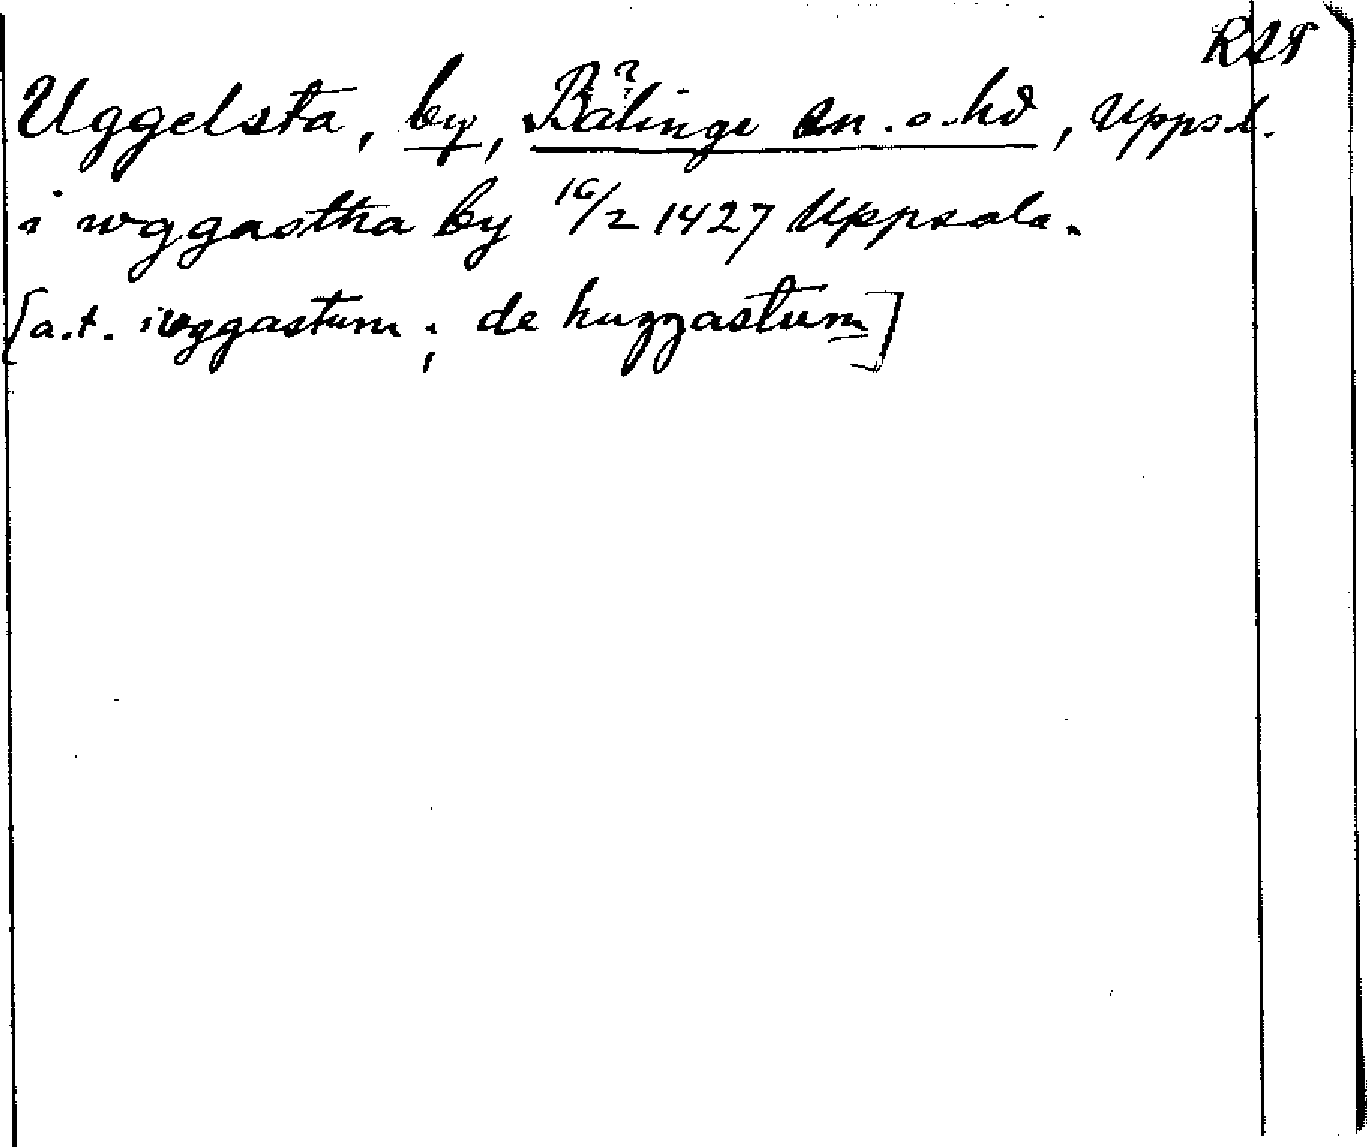 RAP
Uggelsta, by, Bälinge sn. o. hd, Uppsl.
i wggastha by 16/2 1427 Uppsala.
[a.t. i vggastum; de huggastum]